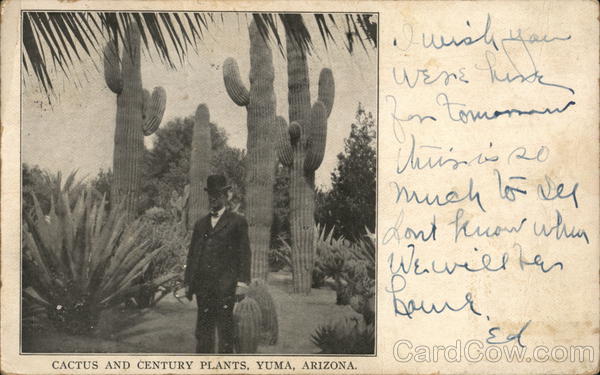 I wish you
were here
for tomorrow
this is so
much to see
dont know when
We will be
home.
Ed
CACTUS AND CENTURY PLANTS, YUMA, ARIZONA.
CardCow.com